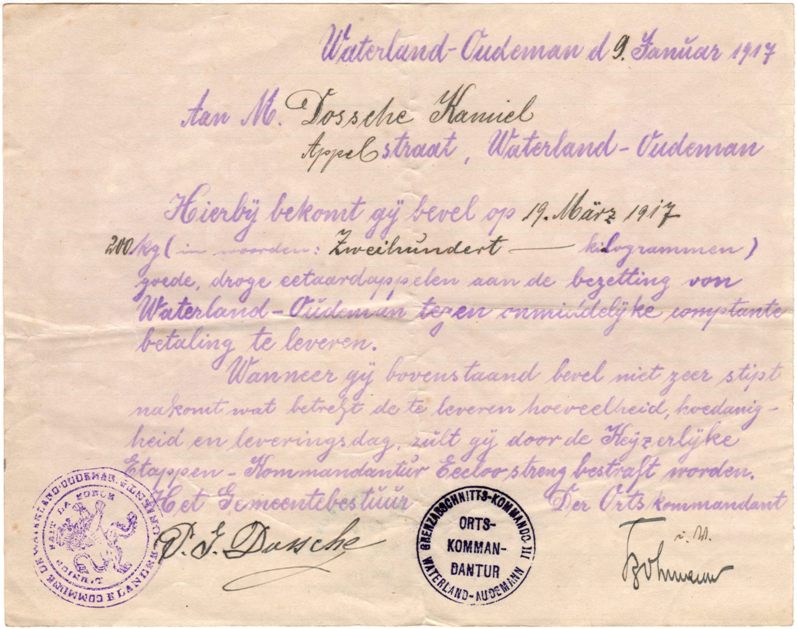 Waterland-Oudeman d 9. Januar 1917
Aan M. Dossche Kamiel
Appelstraat, Waterland-Oudeman
Hierbÿ bekomt gÿ bevel op 19. März 1917
200 kg (in woorden: Zweihundert — kilogrammen)
goede, droge eetaardappelen aan de bezetting von
Waterland-Oudeman tegen onmiddelÿke comptante
betaling te leveren.
Wanneer gÿ bovenstaand bevel niet zeer stipt
nakomt wat betreft de te leveren hoeveelheid, hoedanig-
heid en leveringsdag, zult gÿ door de Keÿzerlÿke
Etappen-Kommandantur Eecloo streng bestraft worden.
Het Gemeentebestuur Der Ortskommandant
COMMUNE DE WATERLAND-OUDEMAN
L'UNION FAIT LA FORCE
Dossche
GRENZABSCHNITTS-KOMMANDO III
ORTS-
KOMMAN-
DANTUR
WATERLAND-AUDEMANN
i. V.